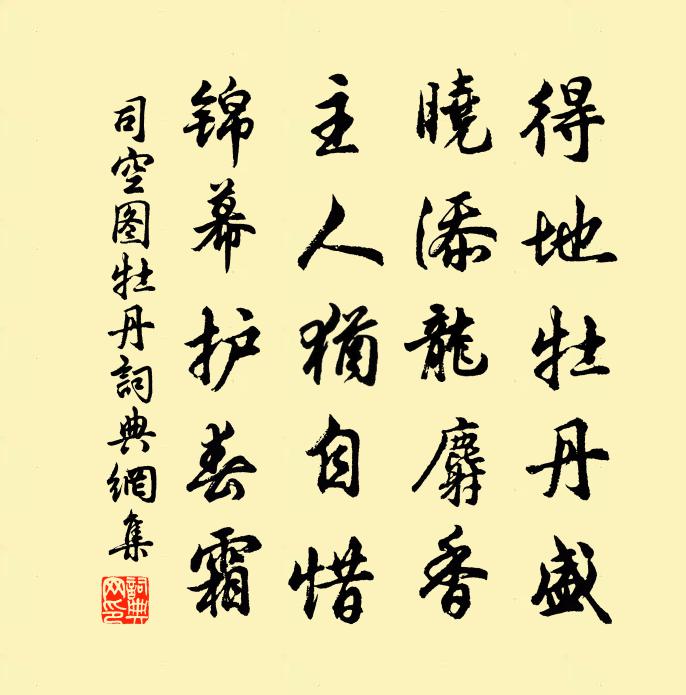 得地牡丹盛
曉添龍麝香
主人猶自惜
锦幕护春霜
司空图牡丹詞典網集
詞典网印